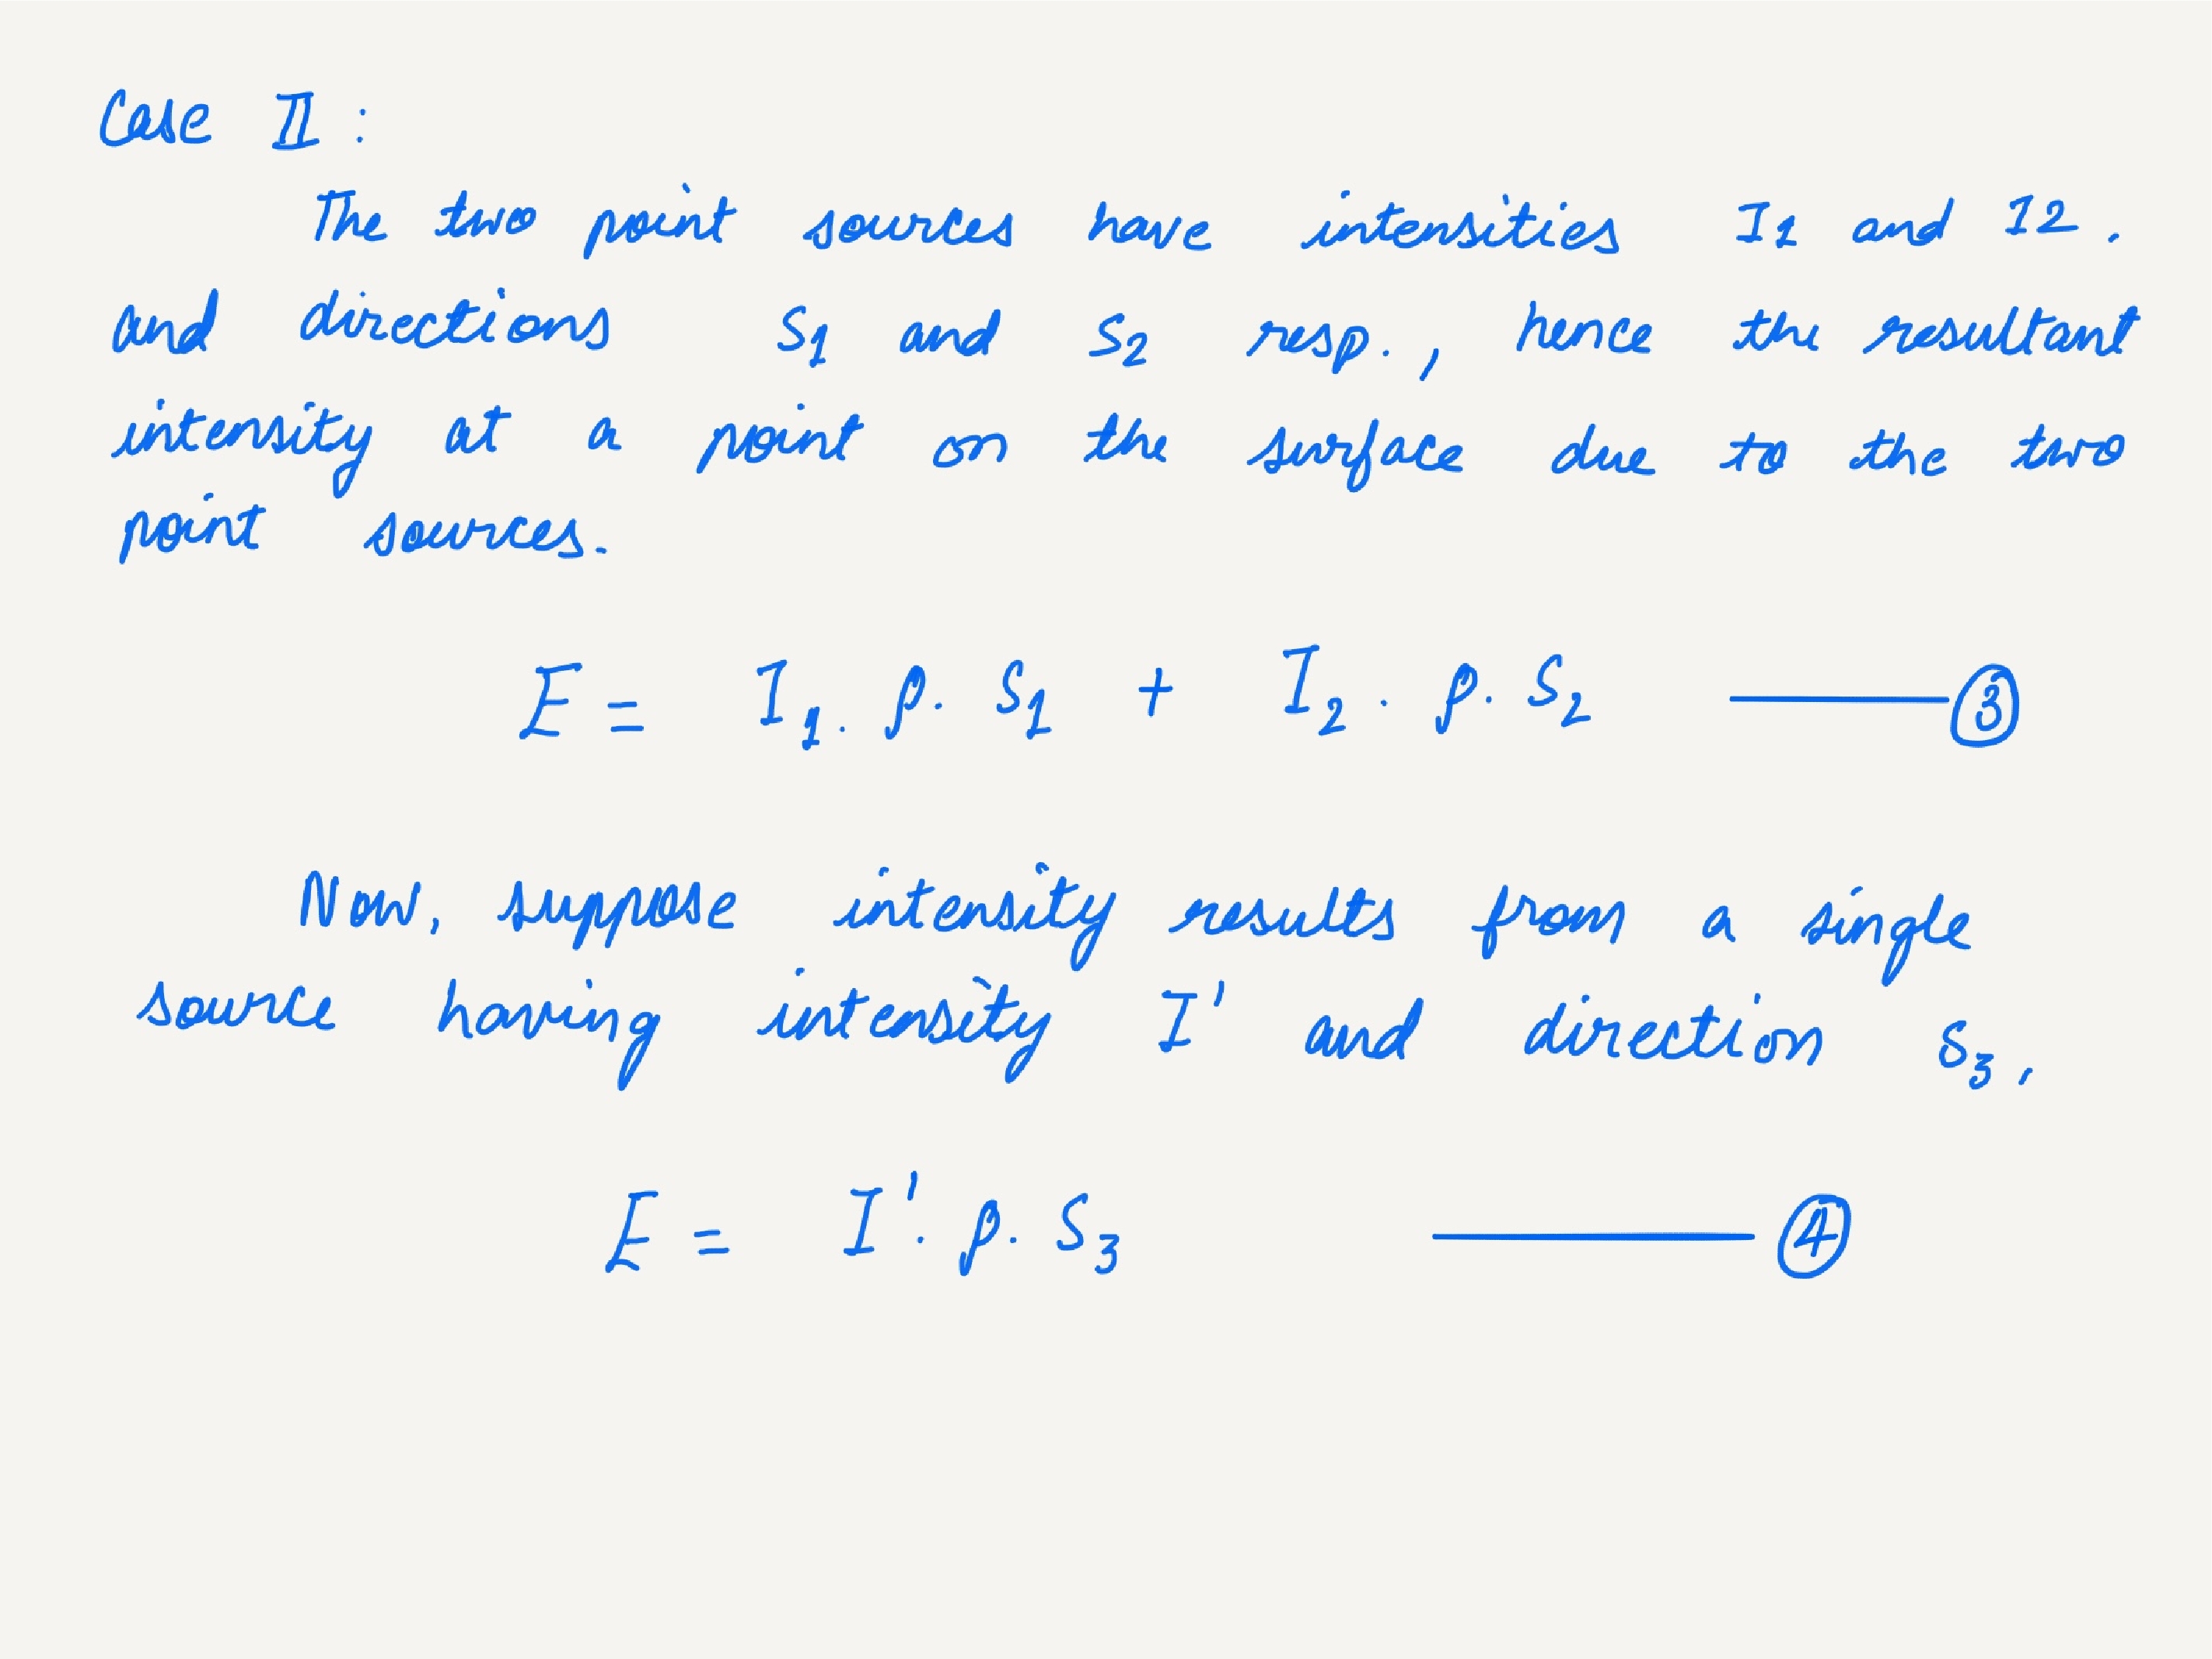 Case II :
The two point sources have intensities I1 and I2.
and directions S1 and S2 resp., hence the resultant
intensity at a point on the surface due to the two
point sources.
E = I₁. ρ. S₁ + I₂. ρ. S₂ ——— ③
Now, suppose intensity results from a single
source having intensity I' and direction S₃,
E = I'. ρ. S₃ ——— ④